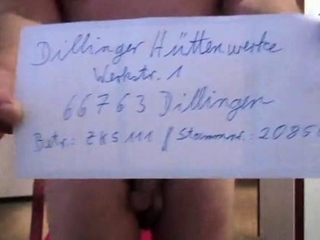 Dillinger Hüttenwerke
Werkstr. 1
66763 Dillingen
Betr.: ZKS 111 / Stammnr. 2085